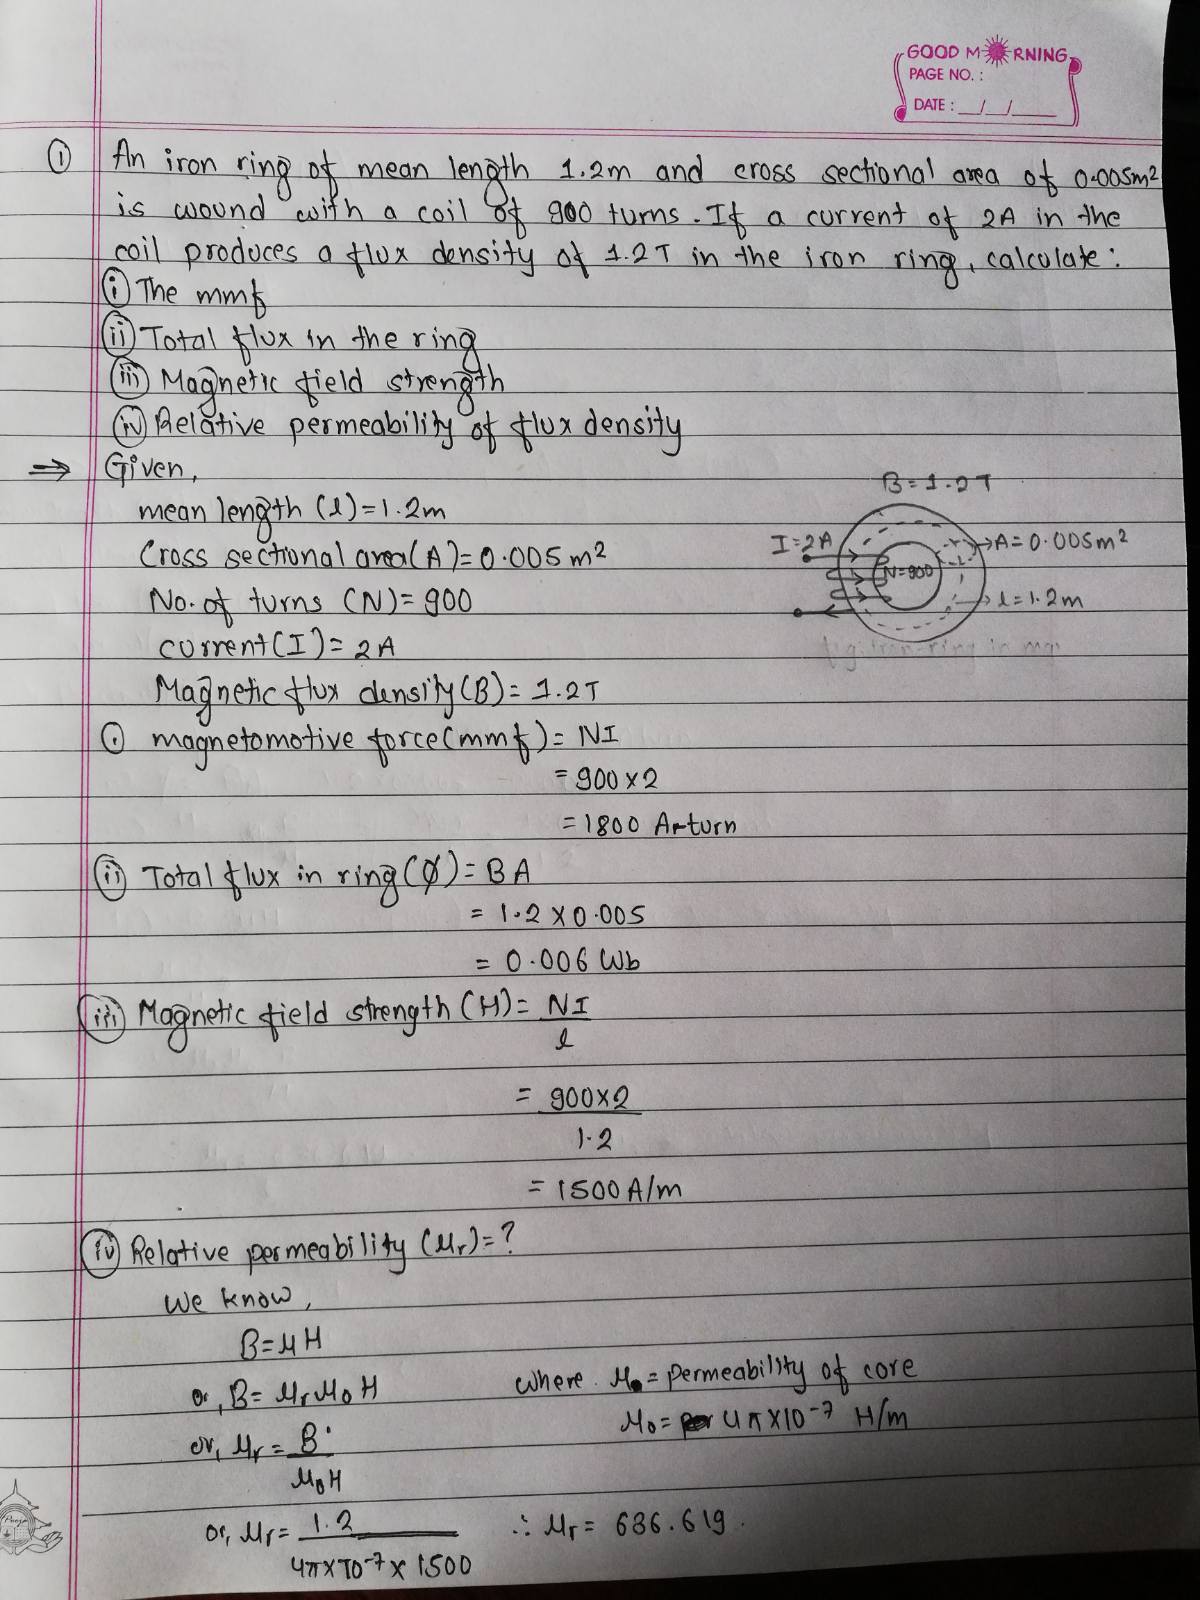 GOOD MORNING
PAGE NO. :
DATE : __/__/____
① An iron ring of mean length 1.2m and cross sectional area of 0.005m²
is wound with a coil of 900 turns. If a current of 2A in the
coil produces a flux density of 1.2T in the iron ring, calculate:
(i) The mmf
(ii) Total flux in the ring
(iii) Magnetic field strength
(iv) Relative permeability of flux density
⇒ Given,
mean length (l)=1.2m
Cross sectional area(A)=0.005m²
No. of turns (N)=900
current(I)=2A
Magnetic flux density(B)=1.2T
B=1.2T
I=2A
A=0.005m²
N=900
l=1.2m
fig: iron-ring in
(i) magnetomotive force(mmf)=NI
=900×2
=1800 A-turn
(ii) Total flux in ring(Ø)=BA
= 1.2×0.005
= 0.006 Wb
(iii) Magnetic field strength(H)= NI
l
= 900×2
1.2
= 1500A/m
(iv) Relative permeability(μr)=?
We know,
B=μH
or, B= μrμ0H where μ = permeability of core
or, μr= B μ0= 4π×10⁻⁷ H/m
μ0H
or, μr= 1.2 ∴ μr= 636.619
4π×10⁻⁷×1500
Pooja